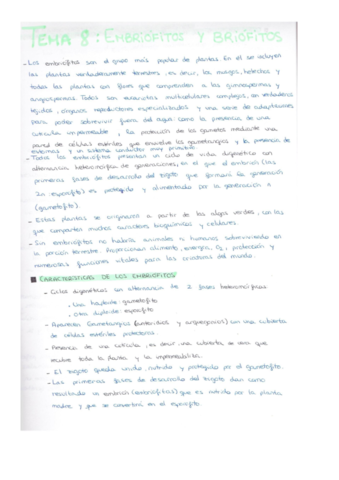 TEMA 8: EMBRIOFITOS Y BRIOFITOS
- Los embriofitos son el grupo más popular de plantas. En él se incluyen
las plantas verdaderamente terrestres, es decir, los musgos, helechos y
todas las plantas con flores que comprenden a las gimnospermas y
angiospermas. Todos son eucariotas multicelulares complejos, con verdaderos
tejidos, órganos reproductores especializados y una serie de adaptaciones
para poder sobrevivir fuera del agua como la presencia de una
cutícula impermeable, la protección de los gametos mediante una
pared de células estériles que envuelve los gametangios y la presencia de
estomas y un sistema conductor muy primitivo.
- Todos los embriofitos presentan un ciclo de vida digenético con
alternancia heteromórfica de generaciones, en el que el embrión (las
primeras fases de desarrollo del zigoto que formará la generación
2n esporofito) es protegido y alimentado por la generación n
(gametofito).
- Estas plantas se originaron a partir de las algas verdes, con las
que comparten muchos caracteres bioquímicos y celulares.
- Sin embriofitos no habría animales ni humanos sobreviviendo en
la porción terrestre. Proporcionan alimento, energía, O2, protección y
numerosas funciones vitales para las criaturas del mundo.
CARACTERÍSTICAS DE LOS EMBRIOFITOS
- Ciclos digenéticos con alternancia de 2 fases heteromórficas
· Una haploide: gametofito
· Otra diploide: esporofito
- Aparecen Gametangios (anteridios y arquegonios) con una cubierta
de células estériles protectoras.
- Presencia de una cutícula, es decir, una cubierta de cera que
recubre toda la planta y la impermeabiliza.
- El zigoto queda unido, nutrido y protegido por el gametofito.
- Las primeras fases de desarrollo del zigoto dan como
resultado un embrión (embriofitos) que es nutrido por la planta
madre y que se convertirá en el esporofito.